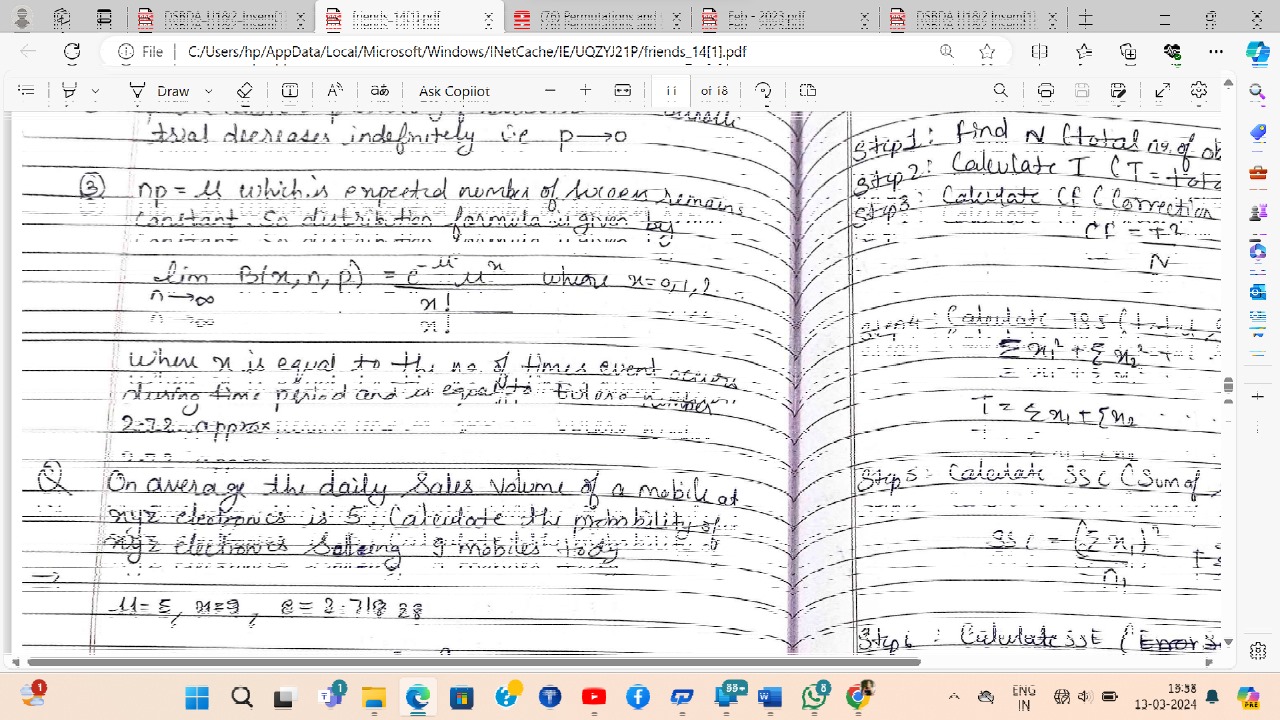 friends_14[1].pdf
(76) Permutations and
Feb - 2023
File
C:/Users/hp/AppData/Local/Microsoft/Windows/INetCache/IE/UQZYJ21P/friends_14[1].pdf
Draw
Ask Copilot
11 of 18
trial decreases indefinitely i.e p→0
③ np = µ which is expected number of success remains
constant. So distribution formula is given by
lim B(x, n, p) = e^-µ µ^x where x=0,1,2.
n→∞ x!
Where x is equal to the no of times event occurs
during time period and is equal to
2.72 approx
Q On average the daily Sales Volume of a mobile at
xyz electronics is 5. Calculate the probability of
xyz electronics Selling 9 mobiles today
→
µ = 5, x=9, e = 2.718 28
Step1: Find N (total no. of ob
Step2: Calculate T (T = tota
Step3: Calculate Cf (Correction
Cf = T2
N
Calculate TSS (total
Σx₁² + Σx₂² +
T = Σx₁ + Σx₂ . . .
Step 5: Calculate SSC (Sum of
SSC = (Σx₁)²
n₁
Step 6: Calculate SSE (Error
1
1
99+
8
ENG
IN
13-03-2024
PRE